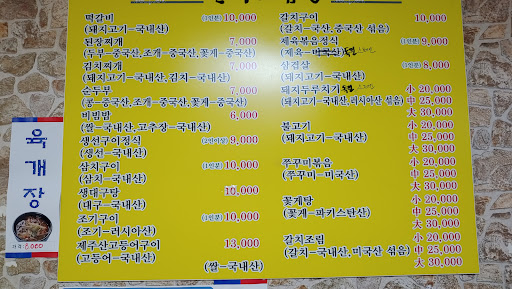 떡갈비 (1인분) 10,000
(돼지고기-국내산)
된장찌개 7,000
(두부-중국산,조개-중국산,꽃게-중국산)
김치찌개 7,000
(돼지고기-국내산,김치-국내산)
순두부 7,000
(콩-중국산,조개-중국산,꽃게-중국산)
비빔밥 6,000
(쌀-국내산,고추장-국내산)
생선구이정식 (2인이상) 9,000
(생선-국내산)
삼치구이 (1인분) 10,000
(삼치-국내산)
생대구탕 10,000
(대구-국내산)
조기구이 (1인분) 10,000
(조기-러시아산)
제주산고등어구이 13,000
(고등어-국내산)
(쌀-국내산)
갈치구이 10,000
(갈치-국산,중국산 섞음)
제육볶음정식 (1인분) 9,000
(제육-미국산)
삼겹살 (1인분) 8,000
(돼지고기-국내산)
돼지두루치기 小 20,000
(돼지고기-국내산,러시아산 섞음) 中 25,000
大 30,000
불고기 小 20,000
(돼지고기-국내산) 中 25,000
大 30,000
쭈꾸미볶음 小 20,000
(쭈꾸미-미국산) 中 25,000
大 30,000
꽃게탕 小 20,000
(꽃게-파키스탄산) 中 25,000
大 30,000
갈치조림 小 20,000
(갈치-국내산,미국산 섞음) 中 25,000
大 30,000
육개장
가격:8,000